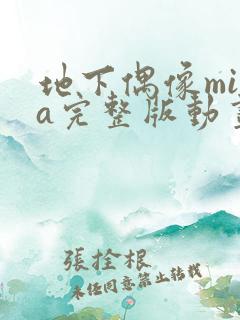 地下偶像mi
a完整版动
張拴根
未经同意禁止转载